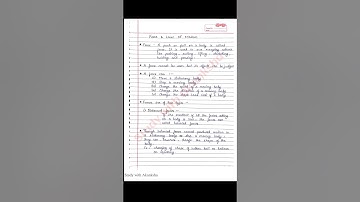 Force & Laws of Motion
• Force - A push or pull on a body is called
force. It is used in our everyday actions
like pushing, pulling, lifting, stretching,
twisting and pressing.
• A force cannot be seen but its effects can be judged
• A force can :-
(i) Move a stationary body
(ii) Stop a moving body
(iii) Change the speed of a moving body
(iv) Change the direction of a moving body
(v) Change the shape and size of a body
• Forces are of two types -
Balanced forces -
If the resultant of all the forces acting
on a body is zero, the forces are
called balanced forces.
• Though balanced forces cannot produced motion in
a stationary body or stop a moving body
they can however change the shape of the
body.
Ex - changing of shape of rubber ball or balloon
on squeezing
Study with Akanksha